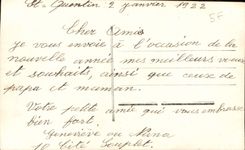 St Quentin 2 janvier 1922
5F
Cher Amis
je vous envoie à l'occasion de la
nouvelle année mes meilleurs vœux
et souhaits, ainsi que ceux de
papa et maman.
Votre petite amie qui vous embrasse
bien fort.
Geneviève ou Nina
10 Cité Souplet